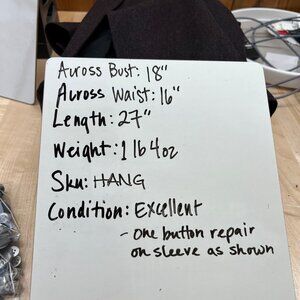 Across Bust: 18"
Across Waist: 16"
Length: 27"
Weight: 1 lb 4oz
Sku: HANG
Condition: Excellent
- one button repair
on sleeve as shown